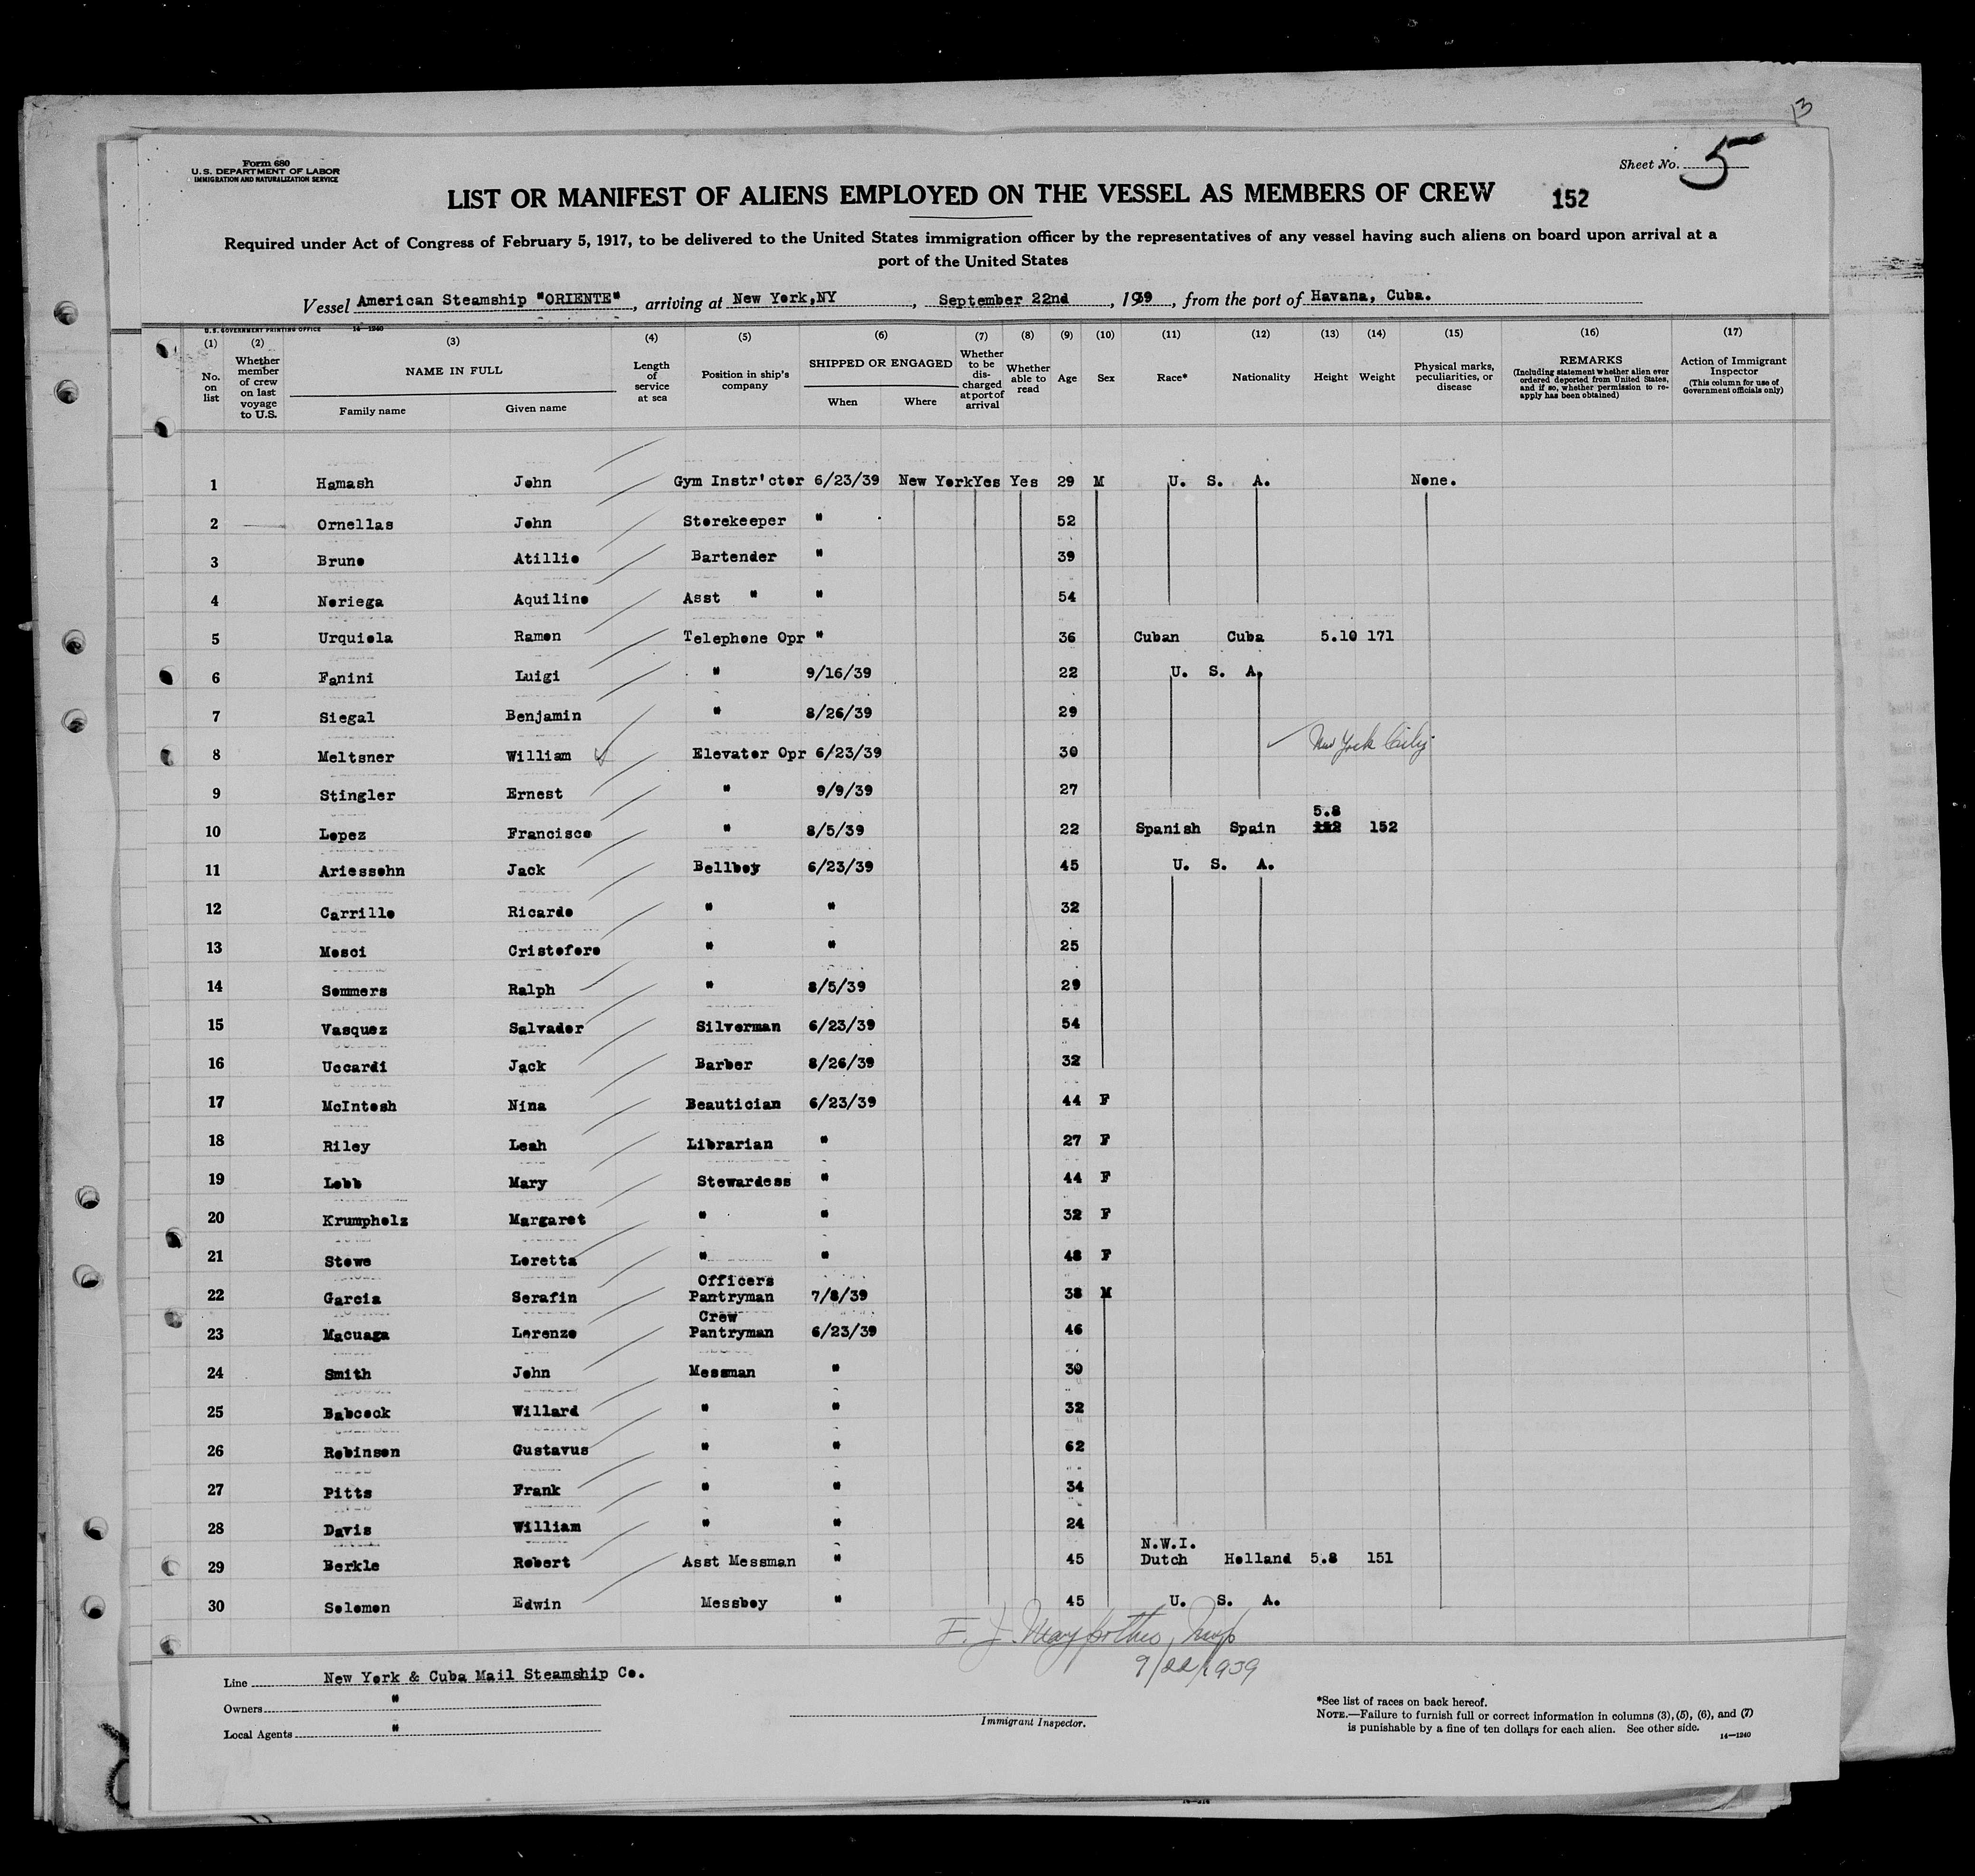 13
Form 680
U.S. DEPARTMENT OF LABOR
IMMIGRATION AND NATURALIZATION SERVICE
Sheet No. 5
LIST OR MANIFEST OF ALIENS EMPLOYED ON THE VESSEL AS MEMBERS OF CREW 152
Required under Act of Congress of February 5, 1917, to be delivered to the United States immigration officer by the representatives of any vessel having such aliens on board upon arrival at a
port of the United States
Vessel American Steamship "ORIENTE", arriving at New York,NY, September 22nd, 1939, from the port of Havana, Cuba.
U.S. GOVERNMENT PRINTING OFFICE 14—1240
(1) (2) (3) (4) (5) (6) (7) (8) (9) (10) (11) (12) (13) (14) (15) (16) (17)
No. on list
Whether member of crew on last voyage to U.S.
NAME IN FULL
Family name Given name
Length of service at sea
Position in ship's company
SHIPPED OR ENGAGED
When Where
Whether to be discharged at port of arrival
Whether able to read
Age Sex Race* Nationality Height Weight
Physical marks, peculiarities, or disease
REMARKS
(Including statement whether alien ever ordered deported from United States, and if so, whether permission to reapply has been obtained)
Action of Immigrant Inspector
(This column for use of Government officials only)
1 Hamash John Gym Instr'ctor 6/23/39 New York Yes Yes 29 M U. S. A. None.
2 Ornellas John Storekeeper " 52
3 Bruno Atillio Bartender " 39
4 Noriega Aquilino Asst " " 54
5 Urquiola Ramon Telephone Opr " 36 Cuban Cuba 5.10 171
6 Fanini Luigi " 9/16/39 22 U. S. A.
7 Siegal Benjamin " 8/26/39 29
8 Meltsner William Elevator Opr 6/23/39 30 New York City
9 Stingler Ernest " 9/9/39 27
5.8
10 Lopez Francisco " 8/5/39 22 Spanish Spain 152 152
11 Ariessohn Jack Bellboy 6/23/39 45 U. S. A.
12 Carrillo Ricardo " " 32
13 Mosci Cristofore " " 25
14 Sommers Ralph " 8/5/39 29
15 Vasquez Salvador Silverman 6/23/39 54
16 Uccardi Jack Barber 8/26/39 32
17 McIntosh Nina Beautician 6/23/39 44 F
18 Riley Leah Librarian " 27 F
19 Lobb Mary Stewardess " 44 F
20 Krumpholz Margaret " " 32 F
21 Stowe Loretta " " 48 F
Officers
22 Garcia Serafin Pantryman 7/8/39 38 M
Crew
23 Macuaga Lorenzo Pantryman 6/23/39 46
24 Smith John Messman " 30
25 Babcock Willard " " 32
26 Robinson Gustavus " " 62
27 Pitts Frank " " 34
28 Davis William " " 24
N.W.I.
29 Berkle Robert Asst Messman " 45 Dutch Holland 5.8 151
30 Solomon Edwin Messboy " 45 U. S. A.
9/22/1939
Line New York & Cuba Mail Steamship Co.
Owners "
Local Agents "
Immigrant Inspector.
*See list of races on back hereof.
NOTE.—Failure to furnish full or correct information in columns (3), (5), (6), and (7)
is punishable by a fine of ten dollars for each alien. See other side.
14—1240